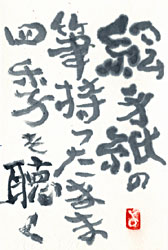 絵手紙の
筆持ったまま
四季を聴く